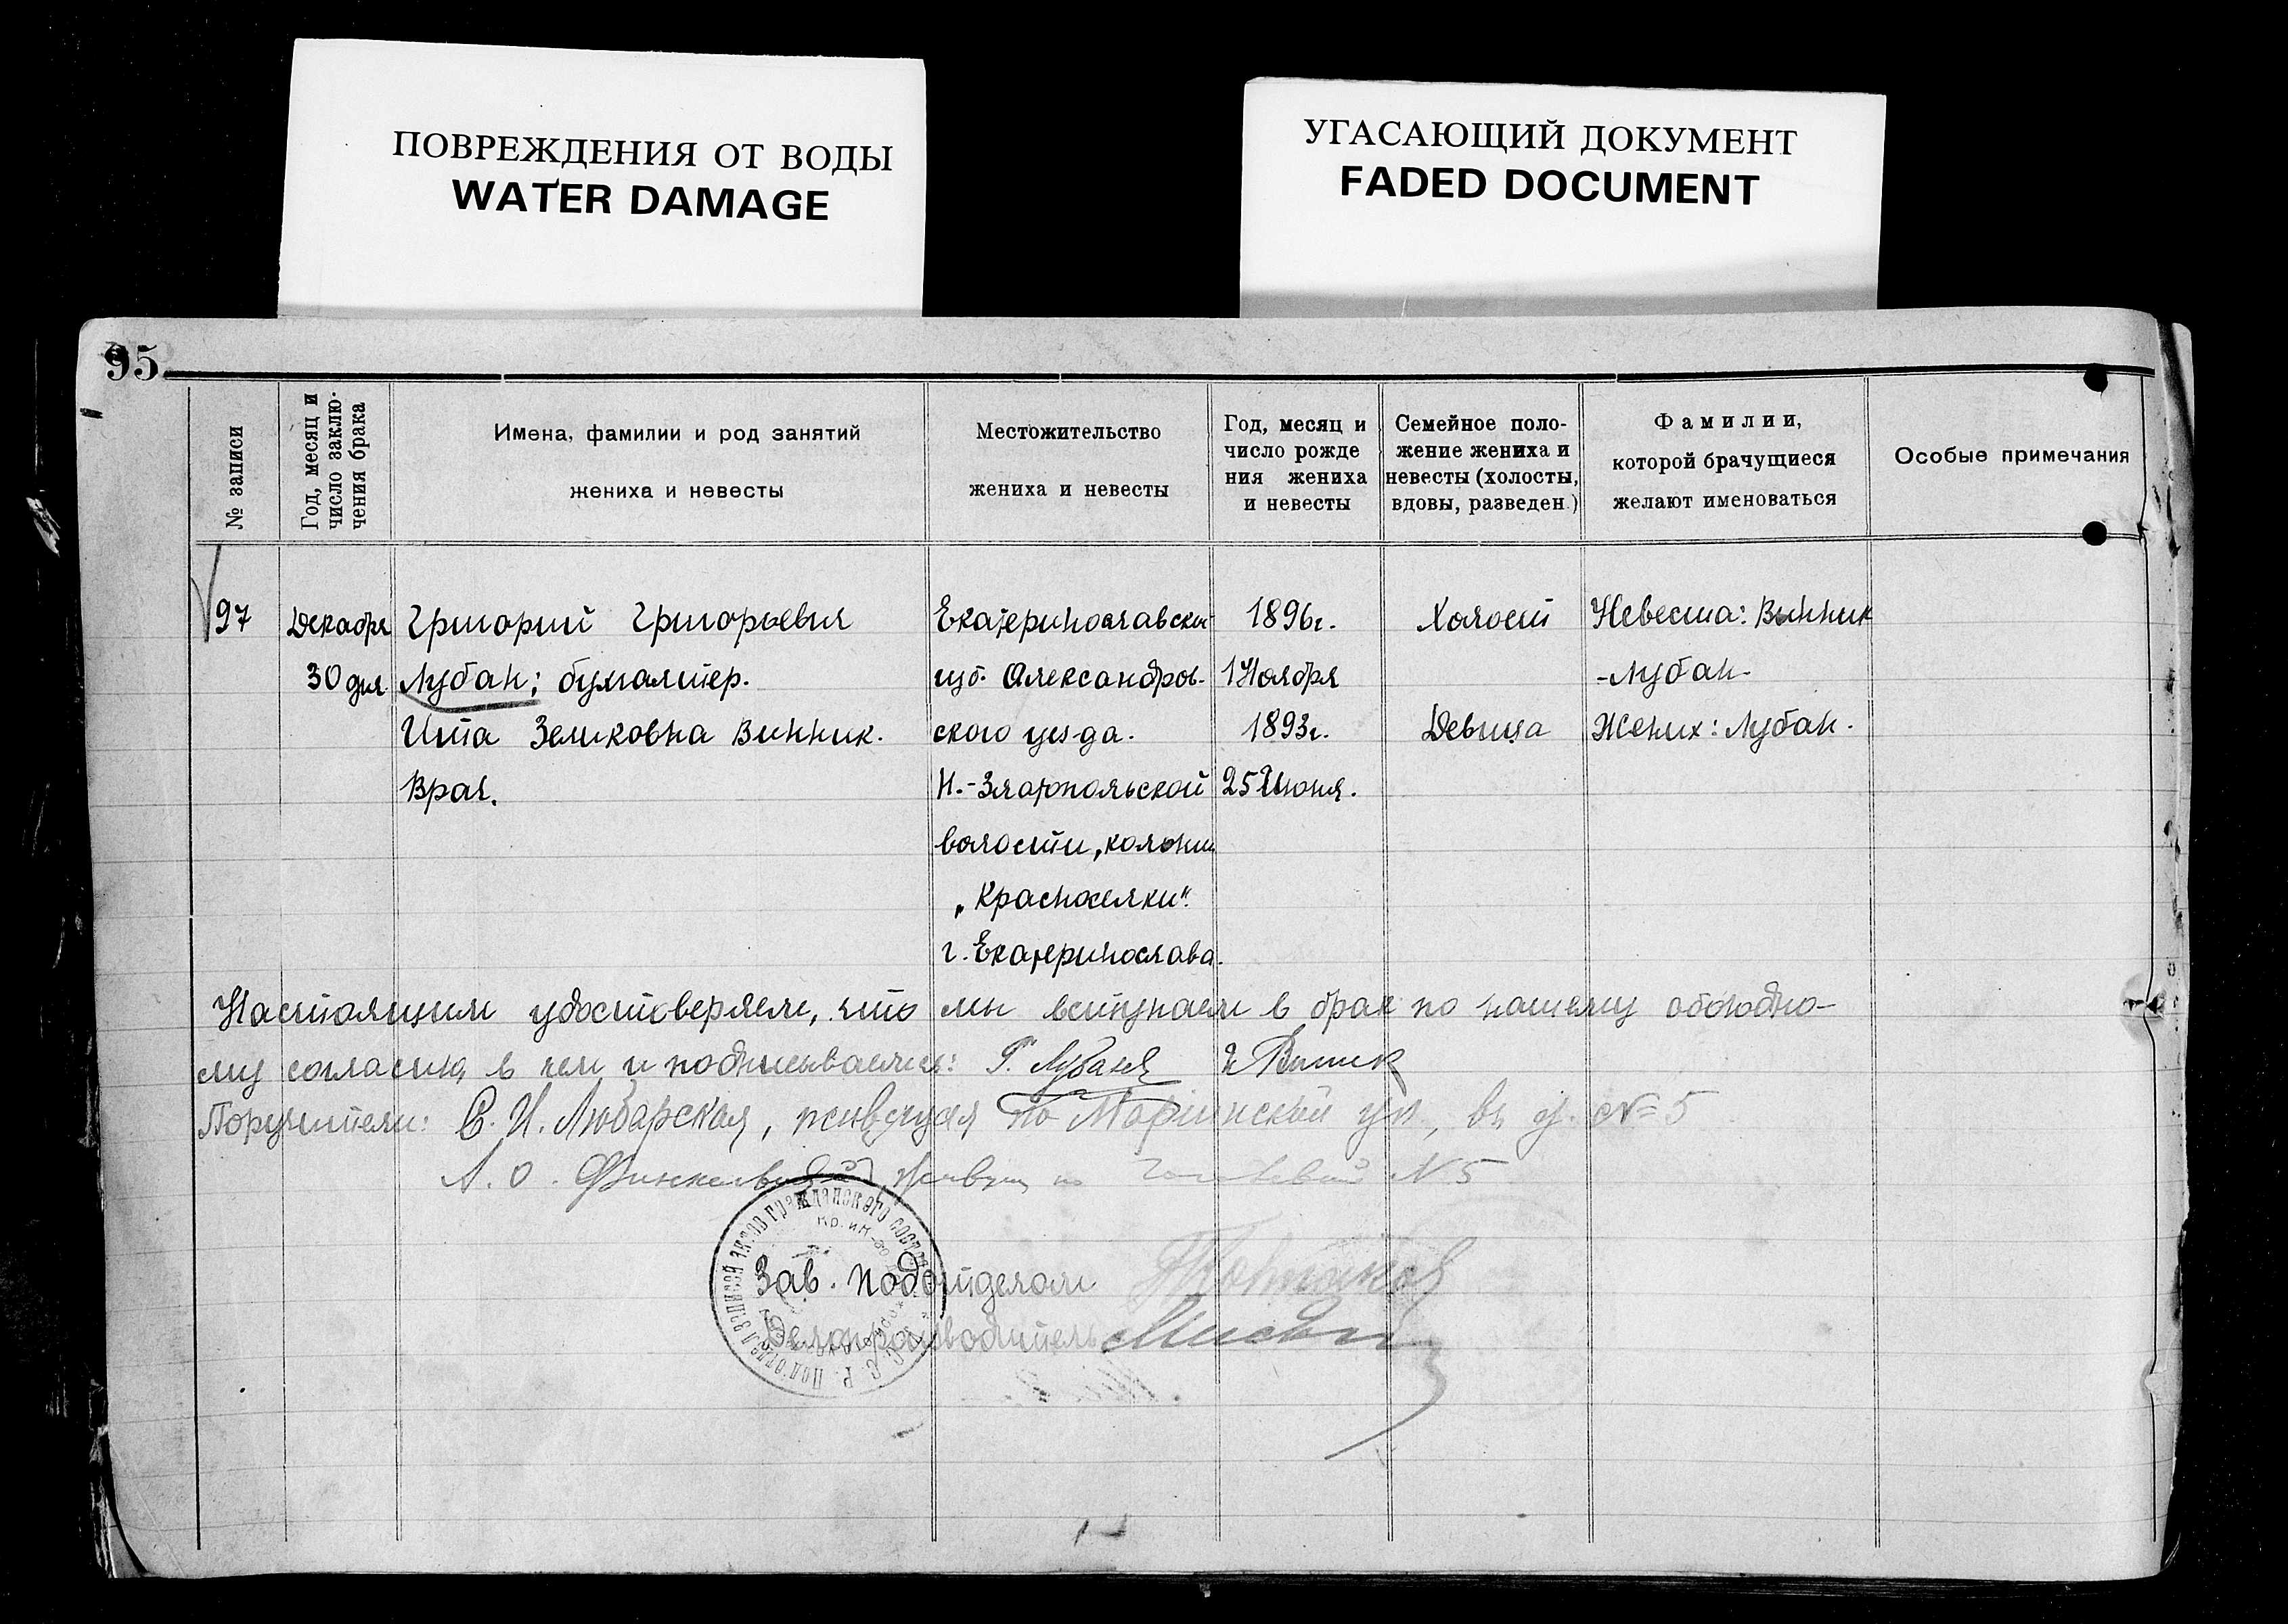 ПОВРЕЖДЕНИЯ ОТ ВОДЫ
WATER DAMAGE
УГАСАЮЩИЙ ДОКУМЕНТ
FADED DOCUMENT
95
№ записи
Год, месяц и
число заклю-
чения брака
Имена, фамилии и род занятий
жениха и невесты
Местожительство
жениха и невесты
Год, месяц и
число рожде
ния жениха
и невесты
Семейное поло-
жение жениха и
невесты (холосты,
вдовы, разведен.)
Фамилии,
которой брачущиеся
желают именоваться
Особые примечания
97
Декабря
30 дня
Григорий Григорьевич
Лубан; бухгалтер.
Ита Зеликовна Винник.
Врач.
Екатеринославской
губ. Александров-
ского уезда.
Н.-Златопольской
волости, колонии
„Красноселки".
г. Екатеринослава.
1896г.
1 Ноября
1893г.
25 Июня.
Холост
Девица
Невеста: Винник
-Лубан-
Жених: Лубан.
Настоящим удостоверяем, что мы вступаем в брак по нашему обоюдно-
му согласию, в чем и подписываемся: Г. Лубан И Винник
Поручители: С. И. Любарская, живущая по Мариинской ул, въ д. №5
Л. О. живущ по №5
Подотдел записей актов гражданского
Зав. подотделом
Делопроизводитель